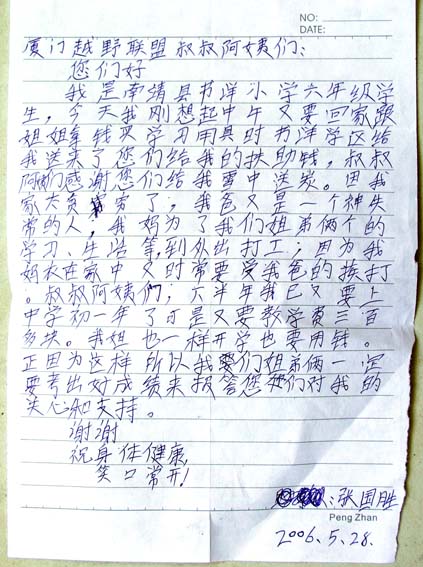 NO:
DATE:
厦门越野联盟叔叔阿姨们:
您们好
我是南靖县书洋小学六年级学
生,今天我刚想起中午又要回家跟
姐姐拿钱买学习用具时书洋学区给
我送来了您们给我的扶助钱,叔叔
阿姨们感谢您们给我雪中送炭。因我
家太贫穷了,我爸又是一个神失
常的人,我妈为了我们姐弟俩个的
学习、生活等,到外出打工;因为我
妈水在家中又时常要受我爸的挨打
。叔叔阿姨们;六半年我已又要上
中学初一年了可是又要教学费三百
多块。我姐也一样开学也要用钱。
正因为这样所以我要们姐弟俩一定
要考出好成绩来报答您们对我的
关心和支持。
谢谢
祝身体健康,
笑口常开!
:张国胜
Peng Zhan
2006.5.28.